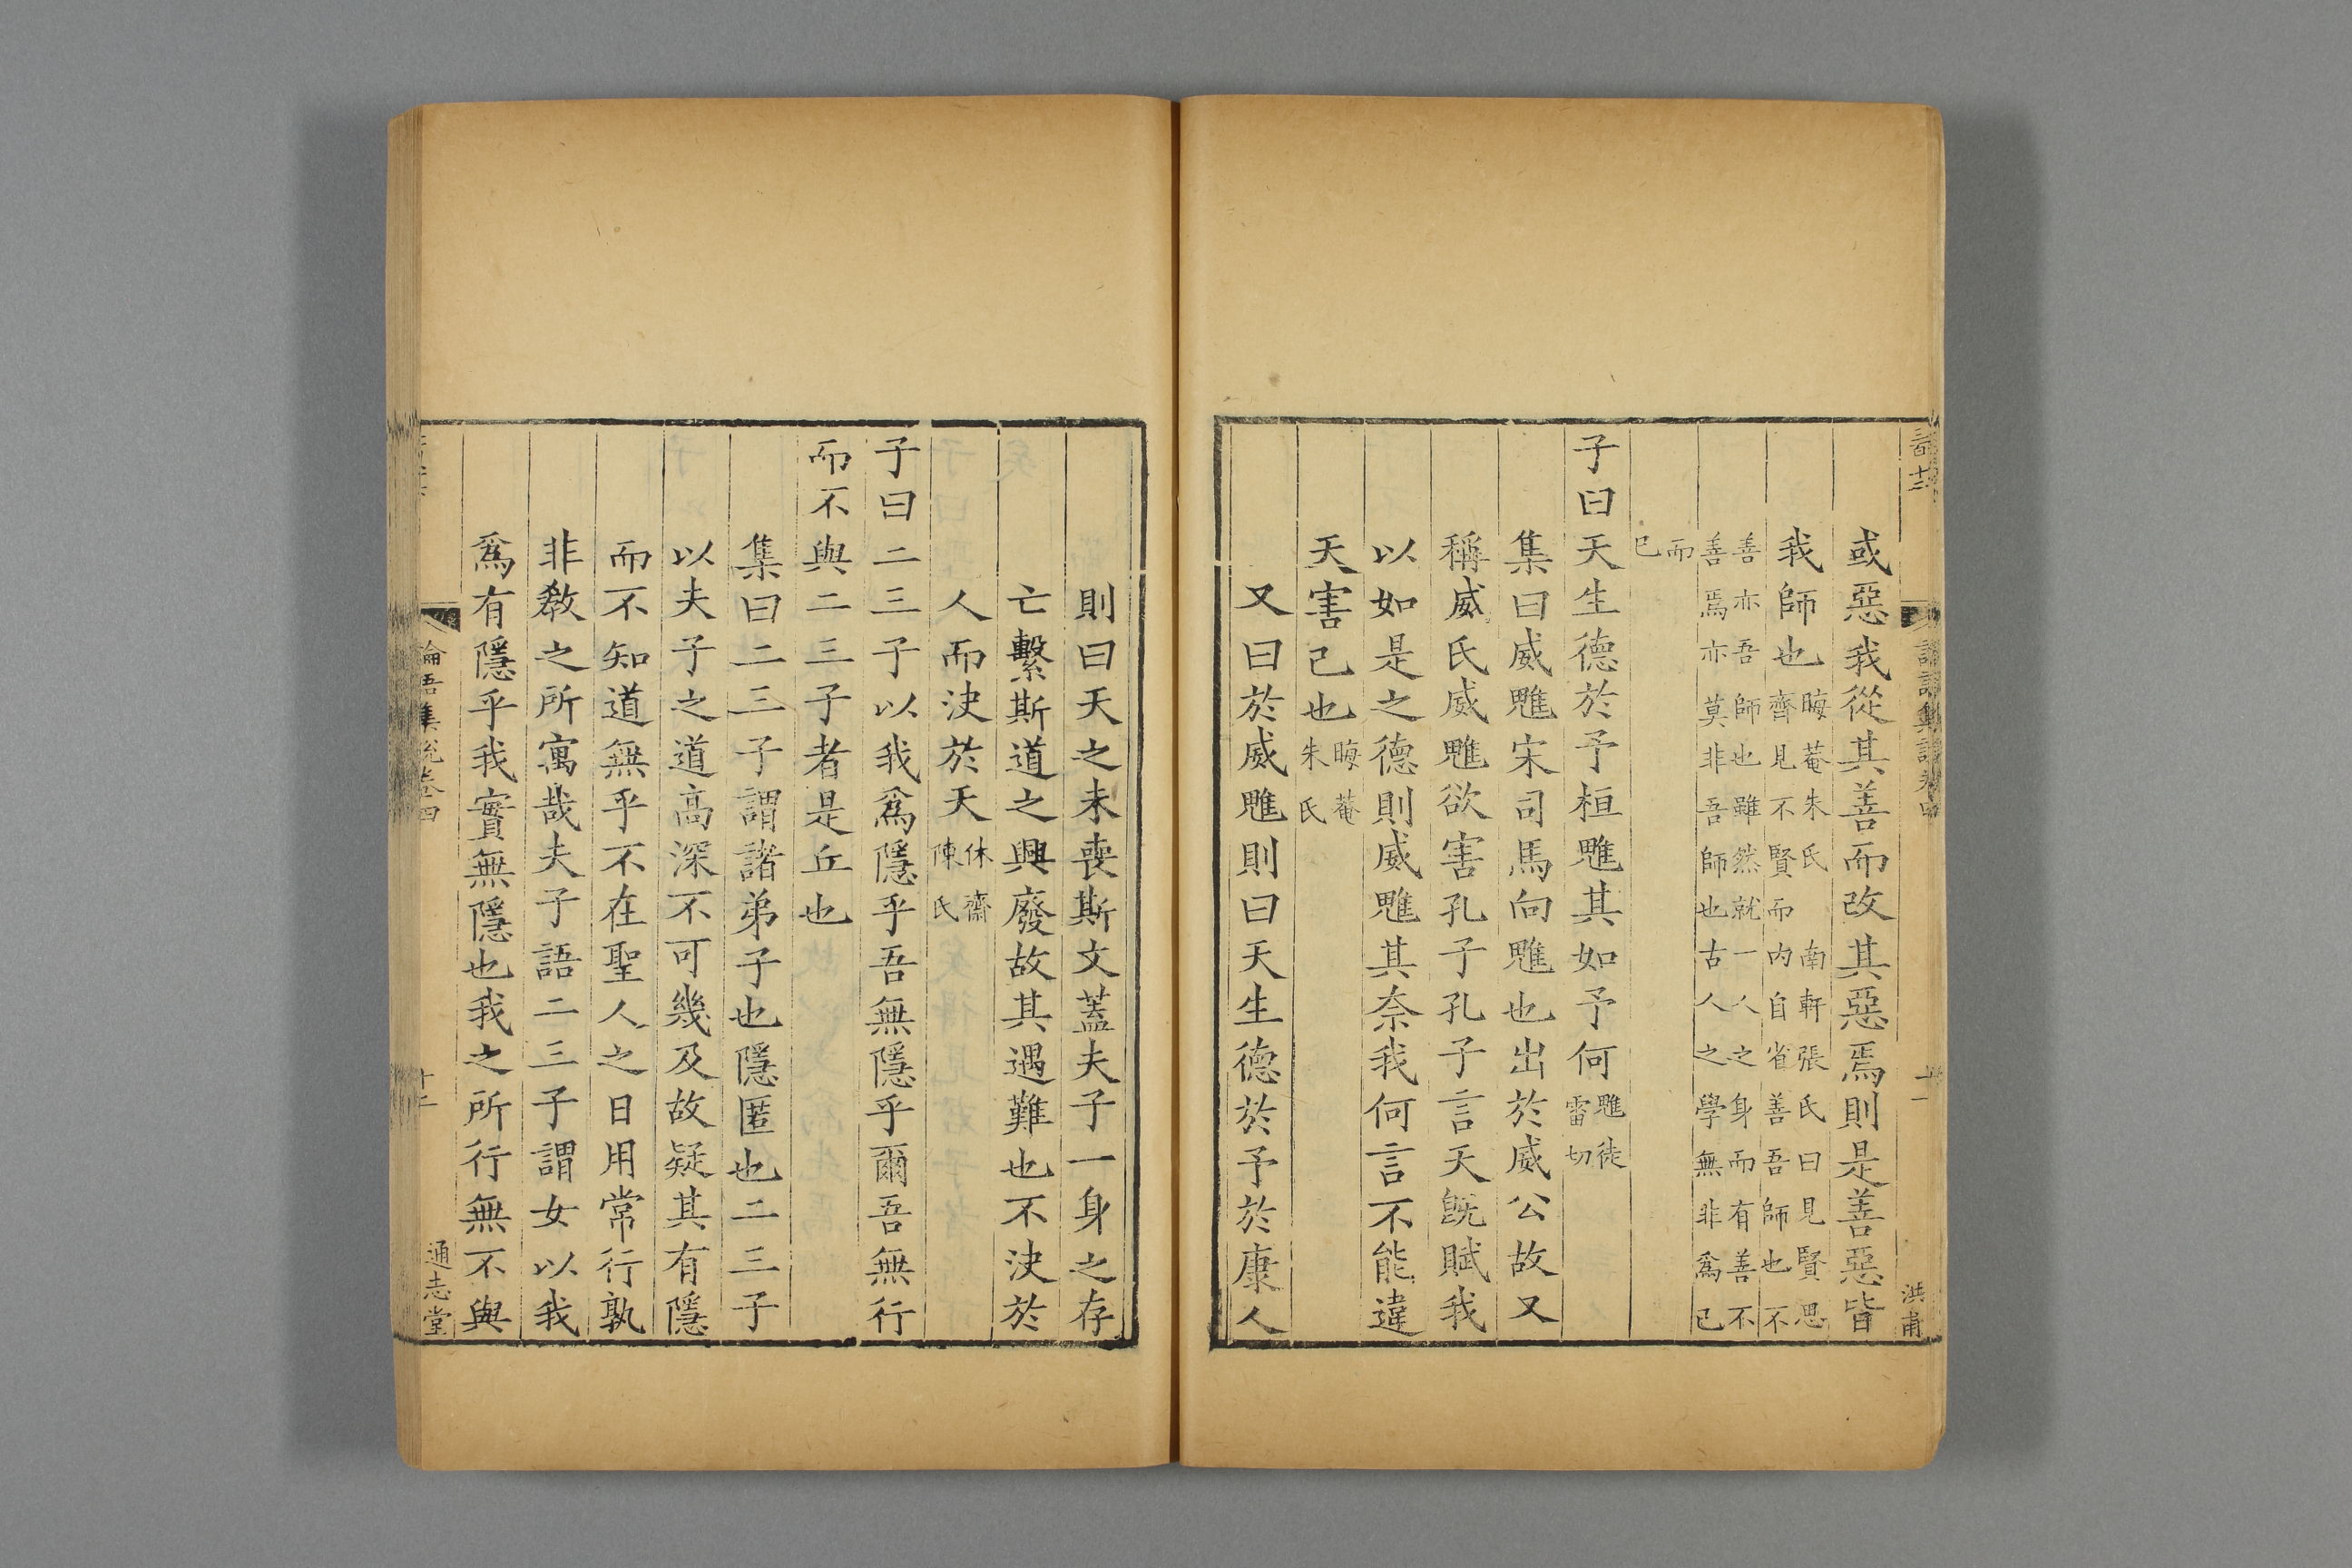 或惡我從其善而改其惡焉則是善惡皆
我師也晦菴朱氏 南軒張氏曰見賢思
齊見不賢而內自省善吾師也不
善亦吾師也雖然就一人之身而有善不
善焉亦莫非吾師也古人之學無非爲己
而
已
子曰天生德於予桓魋其如予何魋徒
雷切
集曰威魋宋司馬向魋也出於威公故又
稱威氏威魋欲害孔子孔子言天旣賦我
以如是之德則威魋其奈我何言不能違
天害己也晦菴
朱氏
又曰於威魋則曰天生德於予於康人
則曰天之未喪斯文蓋夫子一身之存
亡繫斯道之興廢故其遇難也不決於
人而決於天休齋
陳氏
子曰二三子以我爲隱乎吾無隱乎爾吾無行
而不與二三子者是丘也
集曰二三子謂諸弟子也隱匿也二三子
以夫子之道高深不可幾及故疑其有隱
而不知道無乎不在聖人之日用常行孰
非敎之所寓哉夫子語二三子謂女以我
爲有隱乎我實無隱也我之所行無不與
論語集說卷四
十二
通志堂
洪甫